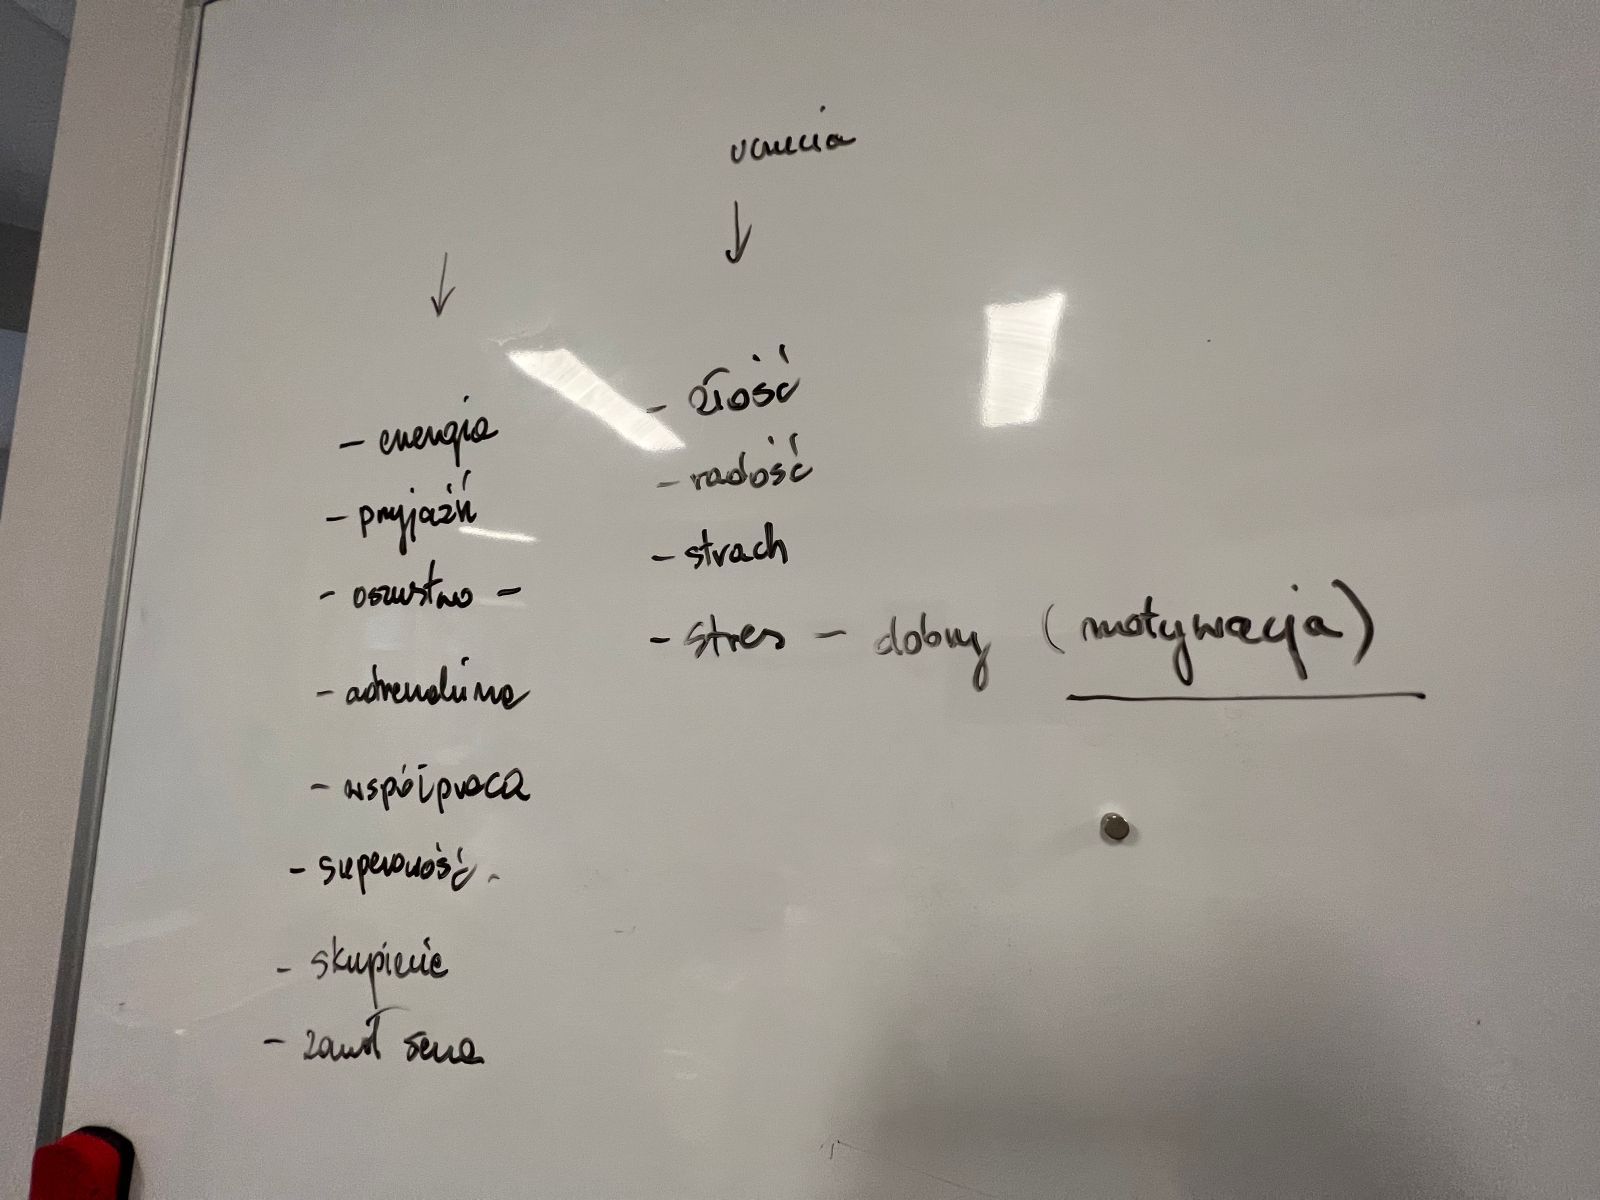 uczucia
- energia
- przyjaźń
- oszustwo -
- adrenalina
- współpraca
- skupienie
- zawał serca
- złość
- radość
- strach
- stres - dobry (motywacja)